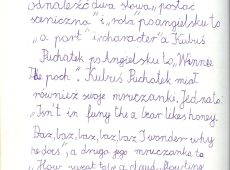 odnaleźć dwa słowa „postać
sceniczna” i „rola” po angielsku to
„a part” i „character” a Kubuś
Puchatek po Angielsku to „Winnee
The pooh”. Kubuś Puchatek miał
również swoje mruczanki. Jedna to
„Isn't in funy the a bear likes honey.
Baz, baz, baz, baz, baz I wonder why
he does”, a druga jego mruczanka to
„How sweet to be a cloud, floating